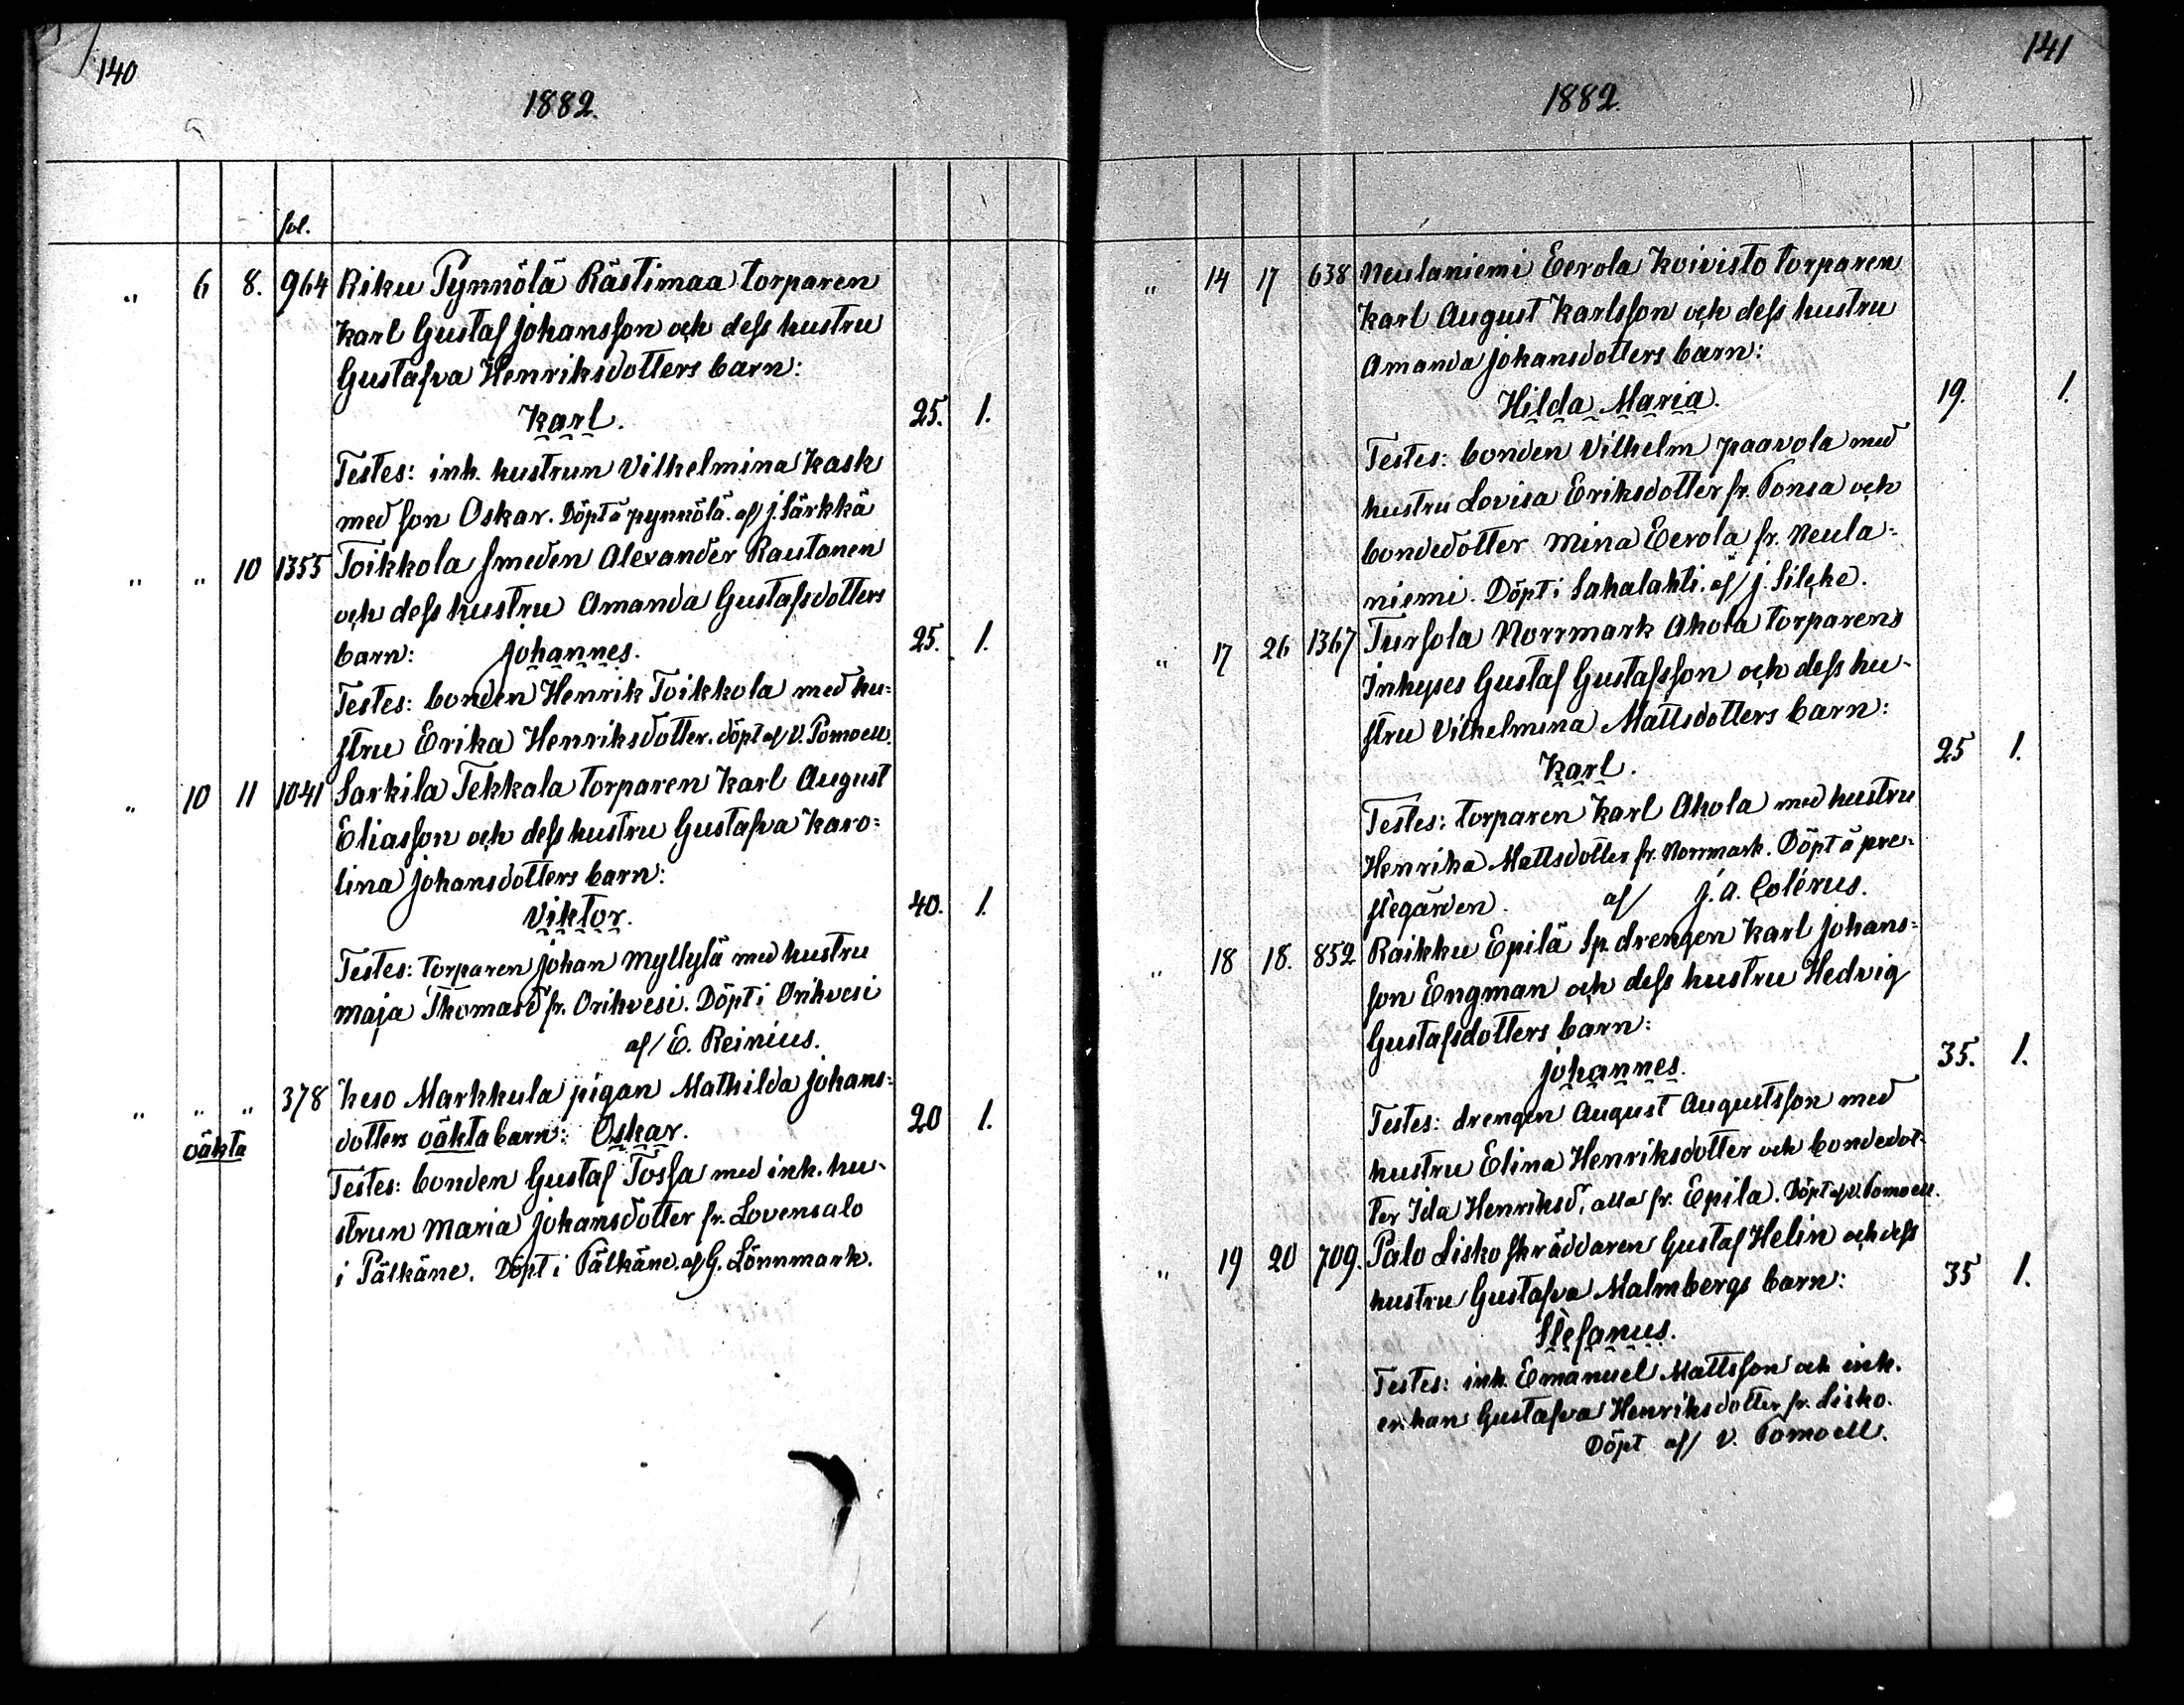 140
1882.
fol.
" 6 8. 964 Riku Pynnölä Rästimaa torparen
Karl Gustaf Johansson och dess hustru
Gustafva Henriksdotters barn:
Karl. 25. 1.
Testes: inh. hustrun Vilhelmina Kask
med son Oskar. Döpt å Pynnölä. af J. Särkkä
" " 10 1355 Toikkola smeden Alexander Rautanen
och dess hustru Amanda Gustafsdotters
barn: Johannes. 25. 1.
Testes: bonden Henrik Toikkola med hu=
stru Erika Henriksdotter. döpt af V. Pomoell.
" 10 11 1041 Sarkila Tekkala torparen Karl August
Eliasson och dess hustru Gustafva Karo=
lina Johansdotters barn:
Viktor. 40. 1.
Testes: torparen Johan Myllylä med hustru
Maja Thomasd fr. Orihvesi. Döpt i Orihvesi
af E. Reinius.
" " " 378 Keso Markkula pigan Mathilda Johans=
oäkta dotters oäkta barn: Oskar. 20 1.
Testes: bonden Gustaf Tossa med inh. hu-
strun Maria Johansdotter fr. Lovensalo
i Pälkäne. Döpt i Pälkäne. af G. Lönnmark.
141
1882.
" 14 17 638 Neulaniemi Eerola Koivisto torparen
Karl August Karlsson och dess hustru
Amanda Johansdotters barn:
Hilda Maria. 19. 1.
Testes: bonden Vilhelm Paavola med
hustru Lovisa Eriksdotter fr. Ponsa och
bondedotter Mina Eerola fr. Neula=
niemi. Döpt i Sahalahti. af J. Silcke.
" 17 26 1367 Tursola Norrmark Ahola torparens
Inhyses Gustaf Gustafsson och dess hu-
stru Vilhelmina Mattsdotters barn:
Karl. 25 1.
Testes: torparen Karl Ahola med hustru
Henrika Mattsdotter fr. Norrmark. Döpt å pre-
stegården. af J. A. Colérus.
" 18 18. 852 Raikku Epilä Sp. drengen Karl Johans=
son Engman och dess hustru Hedvig
Gustafsdotters barn:
Johannes. 35. 1.
Testes: drengen August Augustsson med
hustru Elina Henriksdotter och bondedot-
ter Ida Henriksd, alla fr. Epila. Döpt af V. Pomoell.
" 19 20 709. Palo Lisko skräddaren Gustaf Helin och dess
hustru Gustafva Malmbergs barn: 35 1.
Stefanus.
Testes: inh. Emanuel Mattsson och inh.
enkan Gustafva Henriksdotter fr. Lisko.
Döpt af V. Pomoell.